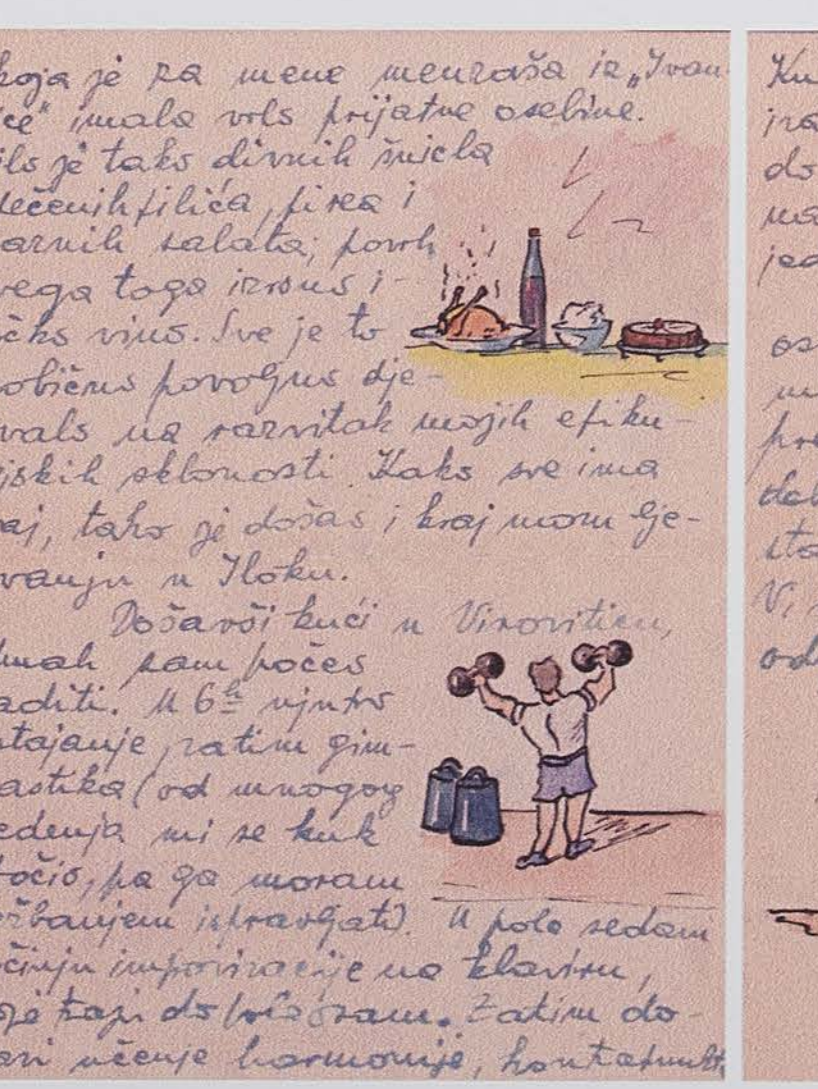 koja je za mene menzaša iz „Ivan-
ice" imala vrlo prijatne osobine.
ilo je tako divnih šnicla
pečenih pilića, pirea i
arnih salata; povrh
vega toga izvrsno i-
čko vino. Sve je to
obično povoljno dje-
valo na razvitak mojih epiku-
jskih sklonosti. Kako sve ima
aj, tako je došao i kraj mom lje-
vanju u Iloku.
Došavši kući u Viroviticu,
mah sam počeo
aditi. U 6h ujutro
stajanje, zatim gim-
astika (od mnogog
edenja mi se kuk
točio, pa ga moram
ežbanjem ispravljati). U pola sedam
činju improvizacije na klaviru,
oje traju do
osam. Zatim do-
azi učenje harmonije, kontrapunkt
Ku
do
na
jed
os
m
pre
sta
V,
od